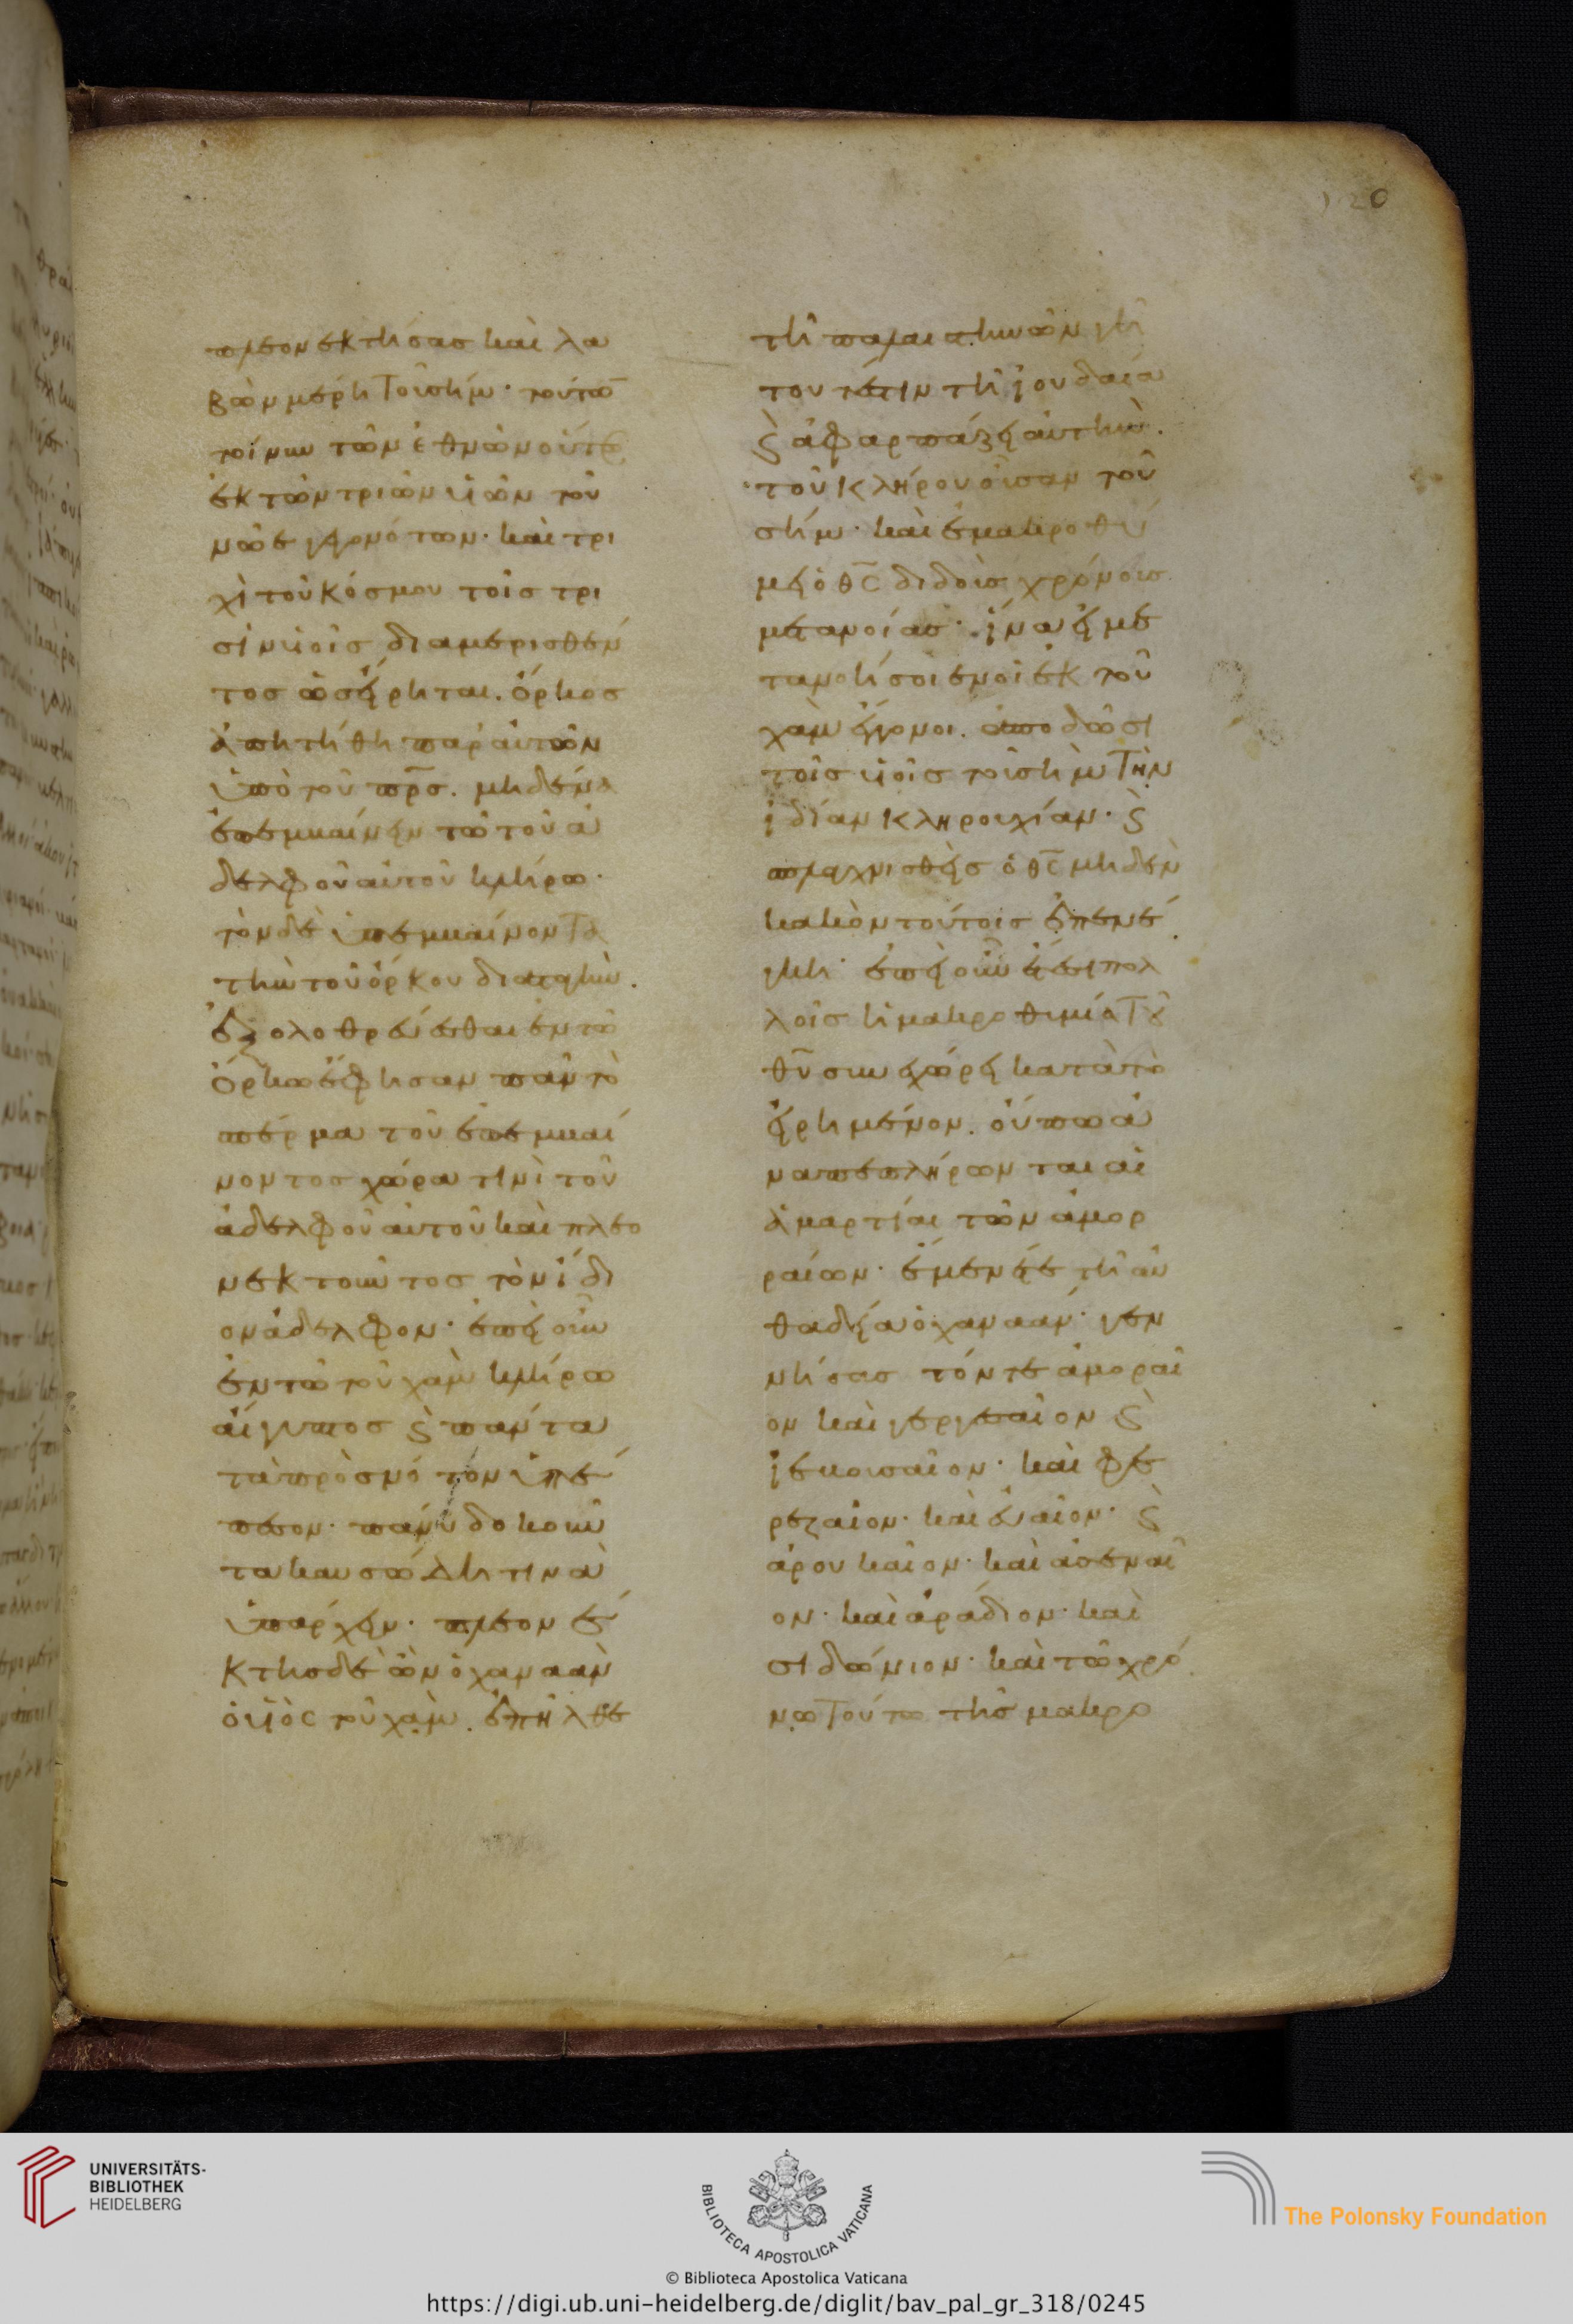 πλεονεκτήσας καὶ λα
βὼν μέρη τοῦ σήμ· τούτω
τοίνυν τῶν ἐθνῶν οὕτως
ἐκ τῶν τριῶν υἱῶν τοῦ
νῶε γενομένων· καὶ τρι
χῆ τοῦ κόσμου τοῖς τρι
σὶν υἱοῖς διαμερισθέν
τος ὡς εἴρηται. ὅρκος
ἀπητήθη παρ' αὐτῶν
ὑπὸ τοῦ πρ̅ς. μηδένα
ἐπεμβαίνειν τῶ τοῦ ἀ
δελφοῦ αὐτοῦ κλήρω·
τὸν δὲ ὑπεμβαίνοντα
τὴν τοῦ ὅρκου διαταγὴν.
ἐξολοθρεύεσθαι ἐν τῶ
ὅρκω ἔφησαν πᾶν τὸ
σπέρμα τοῦ ἐπεμβαί
νοντος χώρα τινὶ τοῦ
ἀδελφοῦ αὐτοῦ καὶ πλεο
νεκτοῦντος τὸν ἴδι
ον ἀδελφον· ἐπεὶ οὖν
ἐν τῶ τοῦ χὰμ κλήρω
αἴγυπτος ϗ πάντα
τὰ πρὸς νότον ὑπέ
πεσον· πάνυ δοκοῦν
τα καυσώδη τινὰ
ὑπάρχειν· πλεονέ
κτης δὲ ὢν ὁ χαναὰν
ὁ υἱὸς τοῦ χάμ. ἐπῆλθε
τῆ παλαιστηνῶν γῆ
τουτέστιν τῆ ἰουδαία
ϗ ἀφαρπάζει αὐτὴν.
τοῦ κλήρου οὖσαν τοῦ
σήμ· καὶ ἐμακροθύ
μει ὁ θ̅ς διδοὺς χρόνους
μετανοίας· ἵνα εἰ με
τανοήσοιεν οἱ ἐκ τοῦ
χὰμ ἔγγονοι. ἀποδῶσι
τοῖς υἱοῖς τοῦ σὴμ τὴν
ἰδίαν κληρουχίαν· ϗ
σπλαγχνισθεὶς ὁ θ̅ς μηδὲν
κακὸν τούτοις ἐπενέ
γκη· ἐπεὶ οὖν
λοῖς ἡ μακροθυμία τοῦ
θ̅υ συγχώρει κατὰ τὸ
εἰρημένον. οὔπω ἀ
ναπεπλήρωνται αἱ
ἁμαρτίαι τῶν ἀμορ
ραίων· ἔμεινέ τε τῆ αὐ
θαδεία ὁ χαναάν· γεν
νήσας τόν τε ἀμοραῖ
ον καὶ γεργεσαῖον ϗ
ἰεβουσαῖον· καὶ φε
ρεζαῖον· καὶ εὐαῖον· ϗ
ἀρουκαῖον· καὶ ἀσεναῖ
ον· καὶ ἀράδιον· καὶ
σιδώνιον· καὶ τῶ χρό
νω τούτω τῆς μακρο
UNIVERSITÄTS-
BIBLIOTHEK
HEIDELBERG
BIBLIOTECA APOSTOLICA VATICANA
The Polonsky Foundation
© Biblioteca Apostolica Vaticana
https://digi.ub.uni-heidelberg.de/diglit/bav_pal_gr_318/0245